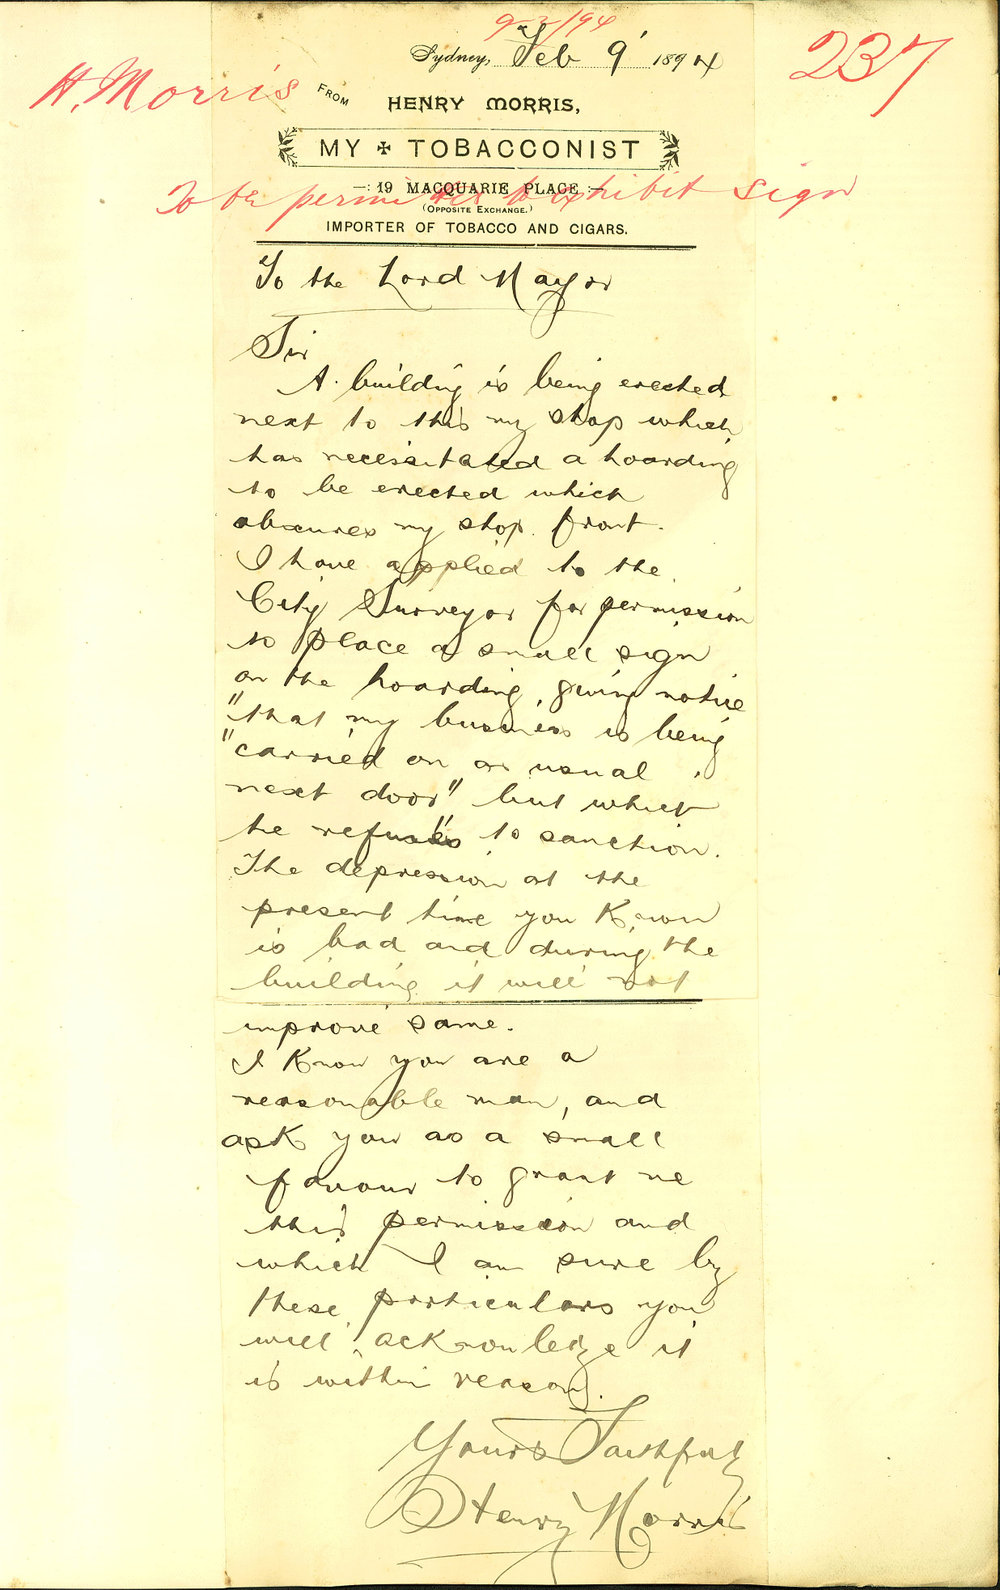 9-2/94
Sydney, Feb 9 1894
237
H. Morris
FROM
HENRY MORRIS,
MY ✠ TOBACCONIST
—: 19 MACQUARIE PLACE :—
To be permitted to exhibit sign
(OPPOSITE EXCHANGE.)
IMPORTER OF TOBACCO AND CIGARS.
To the Lord Mayor
Sir
A building is being erected
next to this my shop which
has necessitated a hoarding
to be erected which
obscures my shop front.
I have applied to the
City Surveyor for permission
to place a small sign
on the hoarding, giving notice
"that my business is being
"carried on as usual
next door" but which
he refuses to sanction.
The depression at the
present time you know
is bad and during the
building it will not
improve same.
I know you are a
reasonable man, and
ask you as a small
favour to grant me
this permission and
which I am sure by
these particulars you
will acknowledge it
is within reason.
Yours Faithfully
Henry Morris